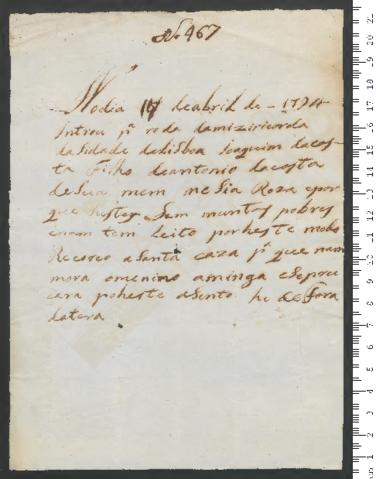 No 467
No dia 14 de abril de 1794
Introu pª roda damizericorda
da Sidade de Lisboa Joaquim dacos-
ta filho de antonio dacosta
de Sua mem Roza epor
que hestes Sam muntos pobres
enam tem Leito por heste modo
Recoreo a Santa caza pª que nam
mora omenino aminga esepro
cura poheste asento he de fora
da tera